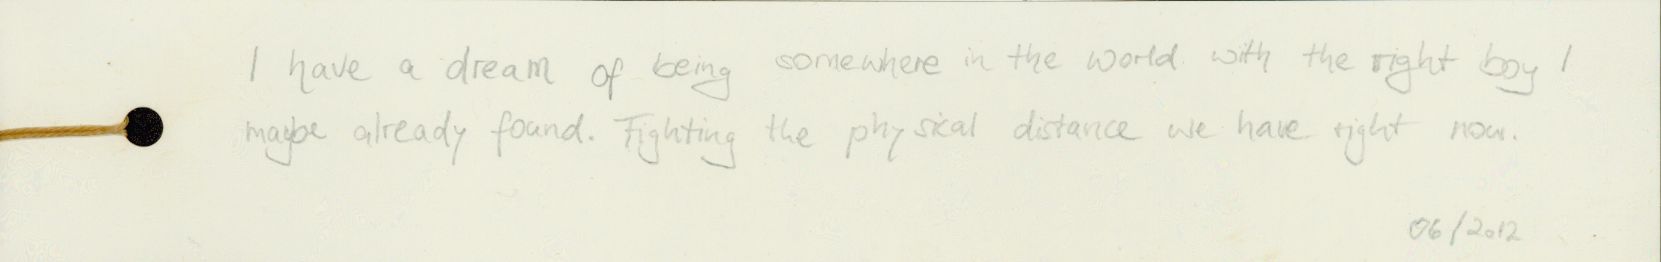 I have a dream of being somewhere in the world with the right boy I
maybe already found. Fighting the physical distance we have right now.
06/2012